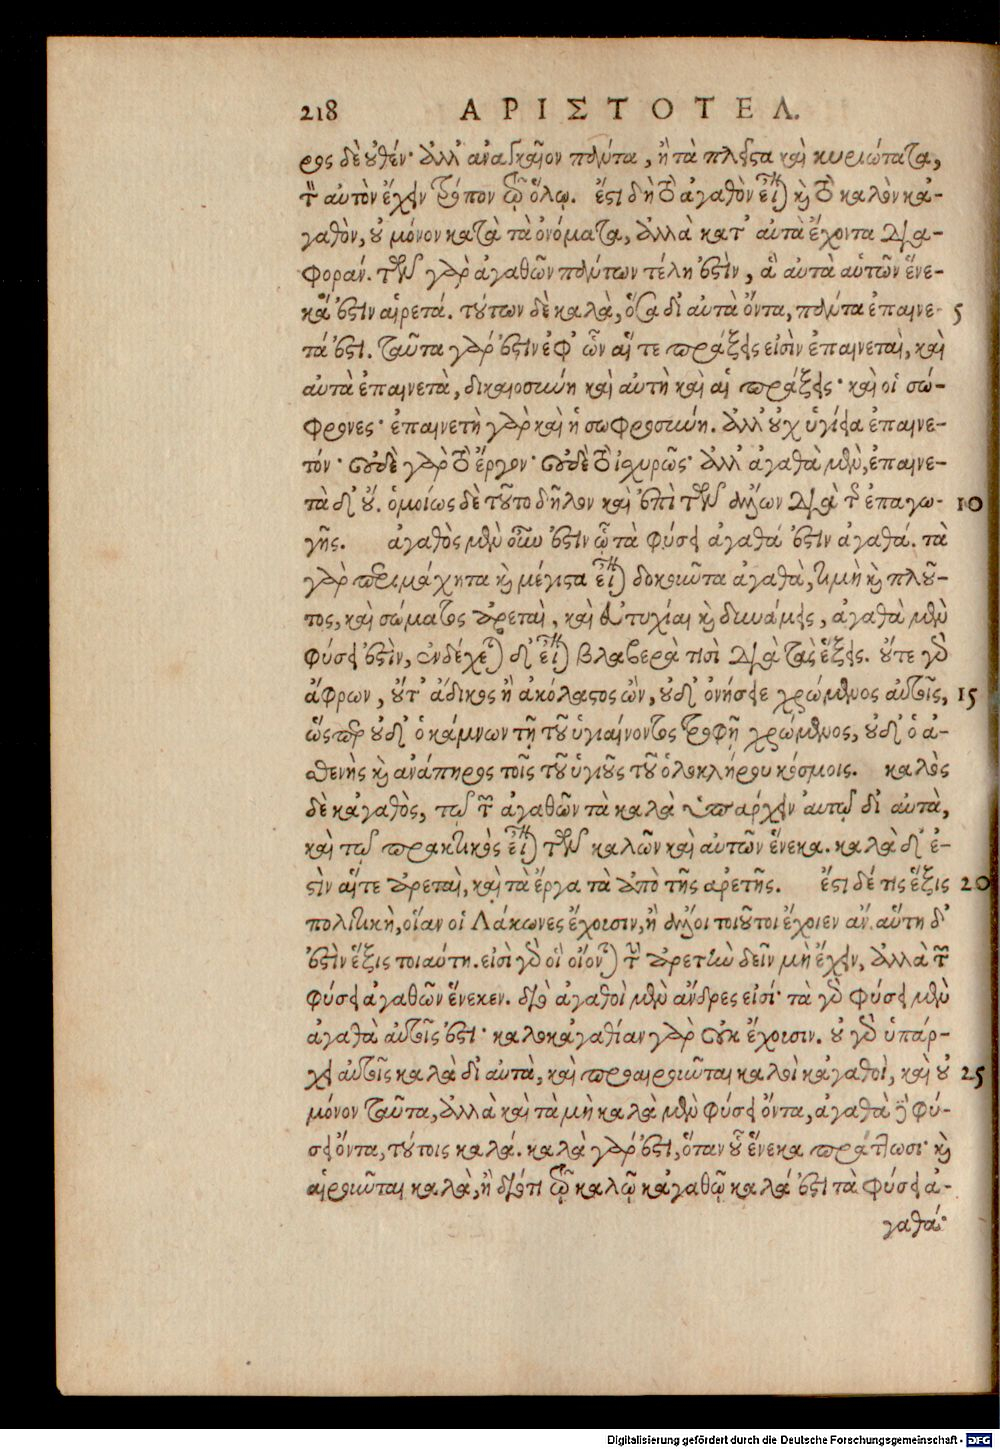 218 ΑΡΙΣΤΟΤΕΛ.
ρος δὲ οὐθέν· ἀλλ' ἀναγκαῖον πάντα, ἢ τὰ πλεῖστα καὶ κυριώτατα,
τὸν αὐτὸν ἔχειν τρόπον τῷ ὅλῳ. ἔστι δὴ τὸ ἀγαθὸν εἶναι καὶ τὸ καλὸν κἀ-
γαθὸν, οὐ μόνον κατὰ τὰ ὀνόματα, ἀλλὰ κατ' αὐτὰ ἔχοντα δια-
φοράν. τῶν γὰρ ἀγαθῶν πάντων τέλη ἐστὶν, ἃ αὐτὰ αὑτῶν ἕνε-
κά ἐστιν αἱρετά. τούτων δὲ καλὰ, ὅσα δι' αὐτὰ ὄντα, πάντα ἐπαινε- 5
τά ἐστι. ταῦτα γάρ ἐστιν ἐφ' ὧν αἵ τε πράξεις εἰσὶν ἐπαινεταὶ, καὶ
αὐτὰ ἐπαινετὰ, δικαιοσύνη καὶ αὐτὴ καὶ αἱ πράξεις· καὶ οἱ σώ-
φρονες· ἐπαινετὴ γὰρ καὶ ἡ σωφροσύνη. ἀλλ' οὐχ ὑγίεια ἐπαινε-
τόν· οὐδὲ γὰρ τὸ ἔργον· οὐδὲ τὸ ἰσχυρῶς· ἀλλ' ἀγαθὰ μὲν, ἐπαινε-
τὰ δ' οὔ. ὁμοίως δὲ τοῦτο δῆλον καὶ ἐπὶ τῶν ἄλλων διὰ τῆς ἐπαγω- 10
γῆς. ἀγαθὸς μὲν οὖν ἐστιν ᾧ τὰ φύσει ἀγαθά ἐστιν ἀγαθά. τὰ
γὰρ περιμάχητα καὶ μέγιστα εἶναι δοκοῦντα ἀγαθὰ, τιμὴ καὶ πλοῦ-
τος, καὶ σώματος ἀρεταὶ, καὶ εὐτυχίαι καὶ δυνάμεις, ἀγαθὰ μὲν
φύσει ἐστὶν, ἐνδέχεται δ' εἶναι βλαβερὰ τισὶ διὰ τὰς ἕξεις. οὔτε γὰρ
ἄφρων, οὔτ' ἄδικος ἢ ἀκόλαστος ὢν, οὐδὲν ὀνήσειε χρώμενος αὐτοῖς, 15
ὥσπερ οὐδ' ὁ κάμνων τῇ τοῦ ὑγιαίνοντος τροφῇ χρώμενος, οὐδ' ὁ ἀ-
σθενὴς καὶ ἀνάπηρος τοῖς τοῦ ὑγιοῦς τοῦ ὁλοκλήρου κόσμοις. καλὸς
δὲ κἀγαθὸς, τῷ τῶν ἀγαθῶν τὰ καλὰ ὑπάρχειν αὐτῷ δι' αὐτὰ,
καὶ τῷ πρακτικὸς εἶναι τῶν καλῶν καὶ αὐτῶν ἕνεκα. καλὰ δ' ἐ-
στὶν αἵτε ἀρεταὶ, καὶ τὰ ἔργα τὰ ἀπὸ τῆς ἀρετῆς. ἔστι δέ τις ἕξις 20
πολιτικὴ, οἵαν οἱ Λάκωνες ἔχουσιν, ἢ ἄλλοι τοιοῦτοι ἔχοιεν ἄν. αὕτη δ'
ἐστὶν ἕξις τοιαύτη. εἰσὶ γὰρ οἳ οἴονται τὴν ἀρετὴν δεῖν μὴ ἔχειν, ἀλλὰ τῶν
φύσει ἀγαθῶν ἕνεκεν. διὸ ἀγαθοὶ μὲν ἄνδρες εἰσί· τὰ γὰρ φύσει μὲν
ἀγαθὰ αὐτοῖς ἐστι· καλοκἀγαθίαν γὰρ οὐκ ἔχουσιν. οὐ γὰρ ὑπάρ-
χει αὐτοῖς καλὰ δι' αὐτὰ, καὶ προαιροῦνται καλοὶ κἀγαθοὶ, καὶ οὐ 25
μόνον ταῦτα, ἀλλὰ καὶ τὰ μὴ καλὰ μὲν φύσει ὄντα, ἀγαθὰ δὲ φύ-
σει ὄντα, τούτοις καλά. καλὰ γάρ ἐστι, ὅταν οὗ ἕνεκα πράττωσι· καὶ
αἱροῦνται καλὰ, ἢ διότι τῷ καλῷ κἀγαθῷ καλά ἐστι τὰ φύσει ἀ-
γαθά·
Digitalisierung gefördert durch die Deutsche Forschungsgemeinschaft - DFG